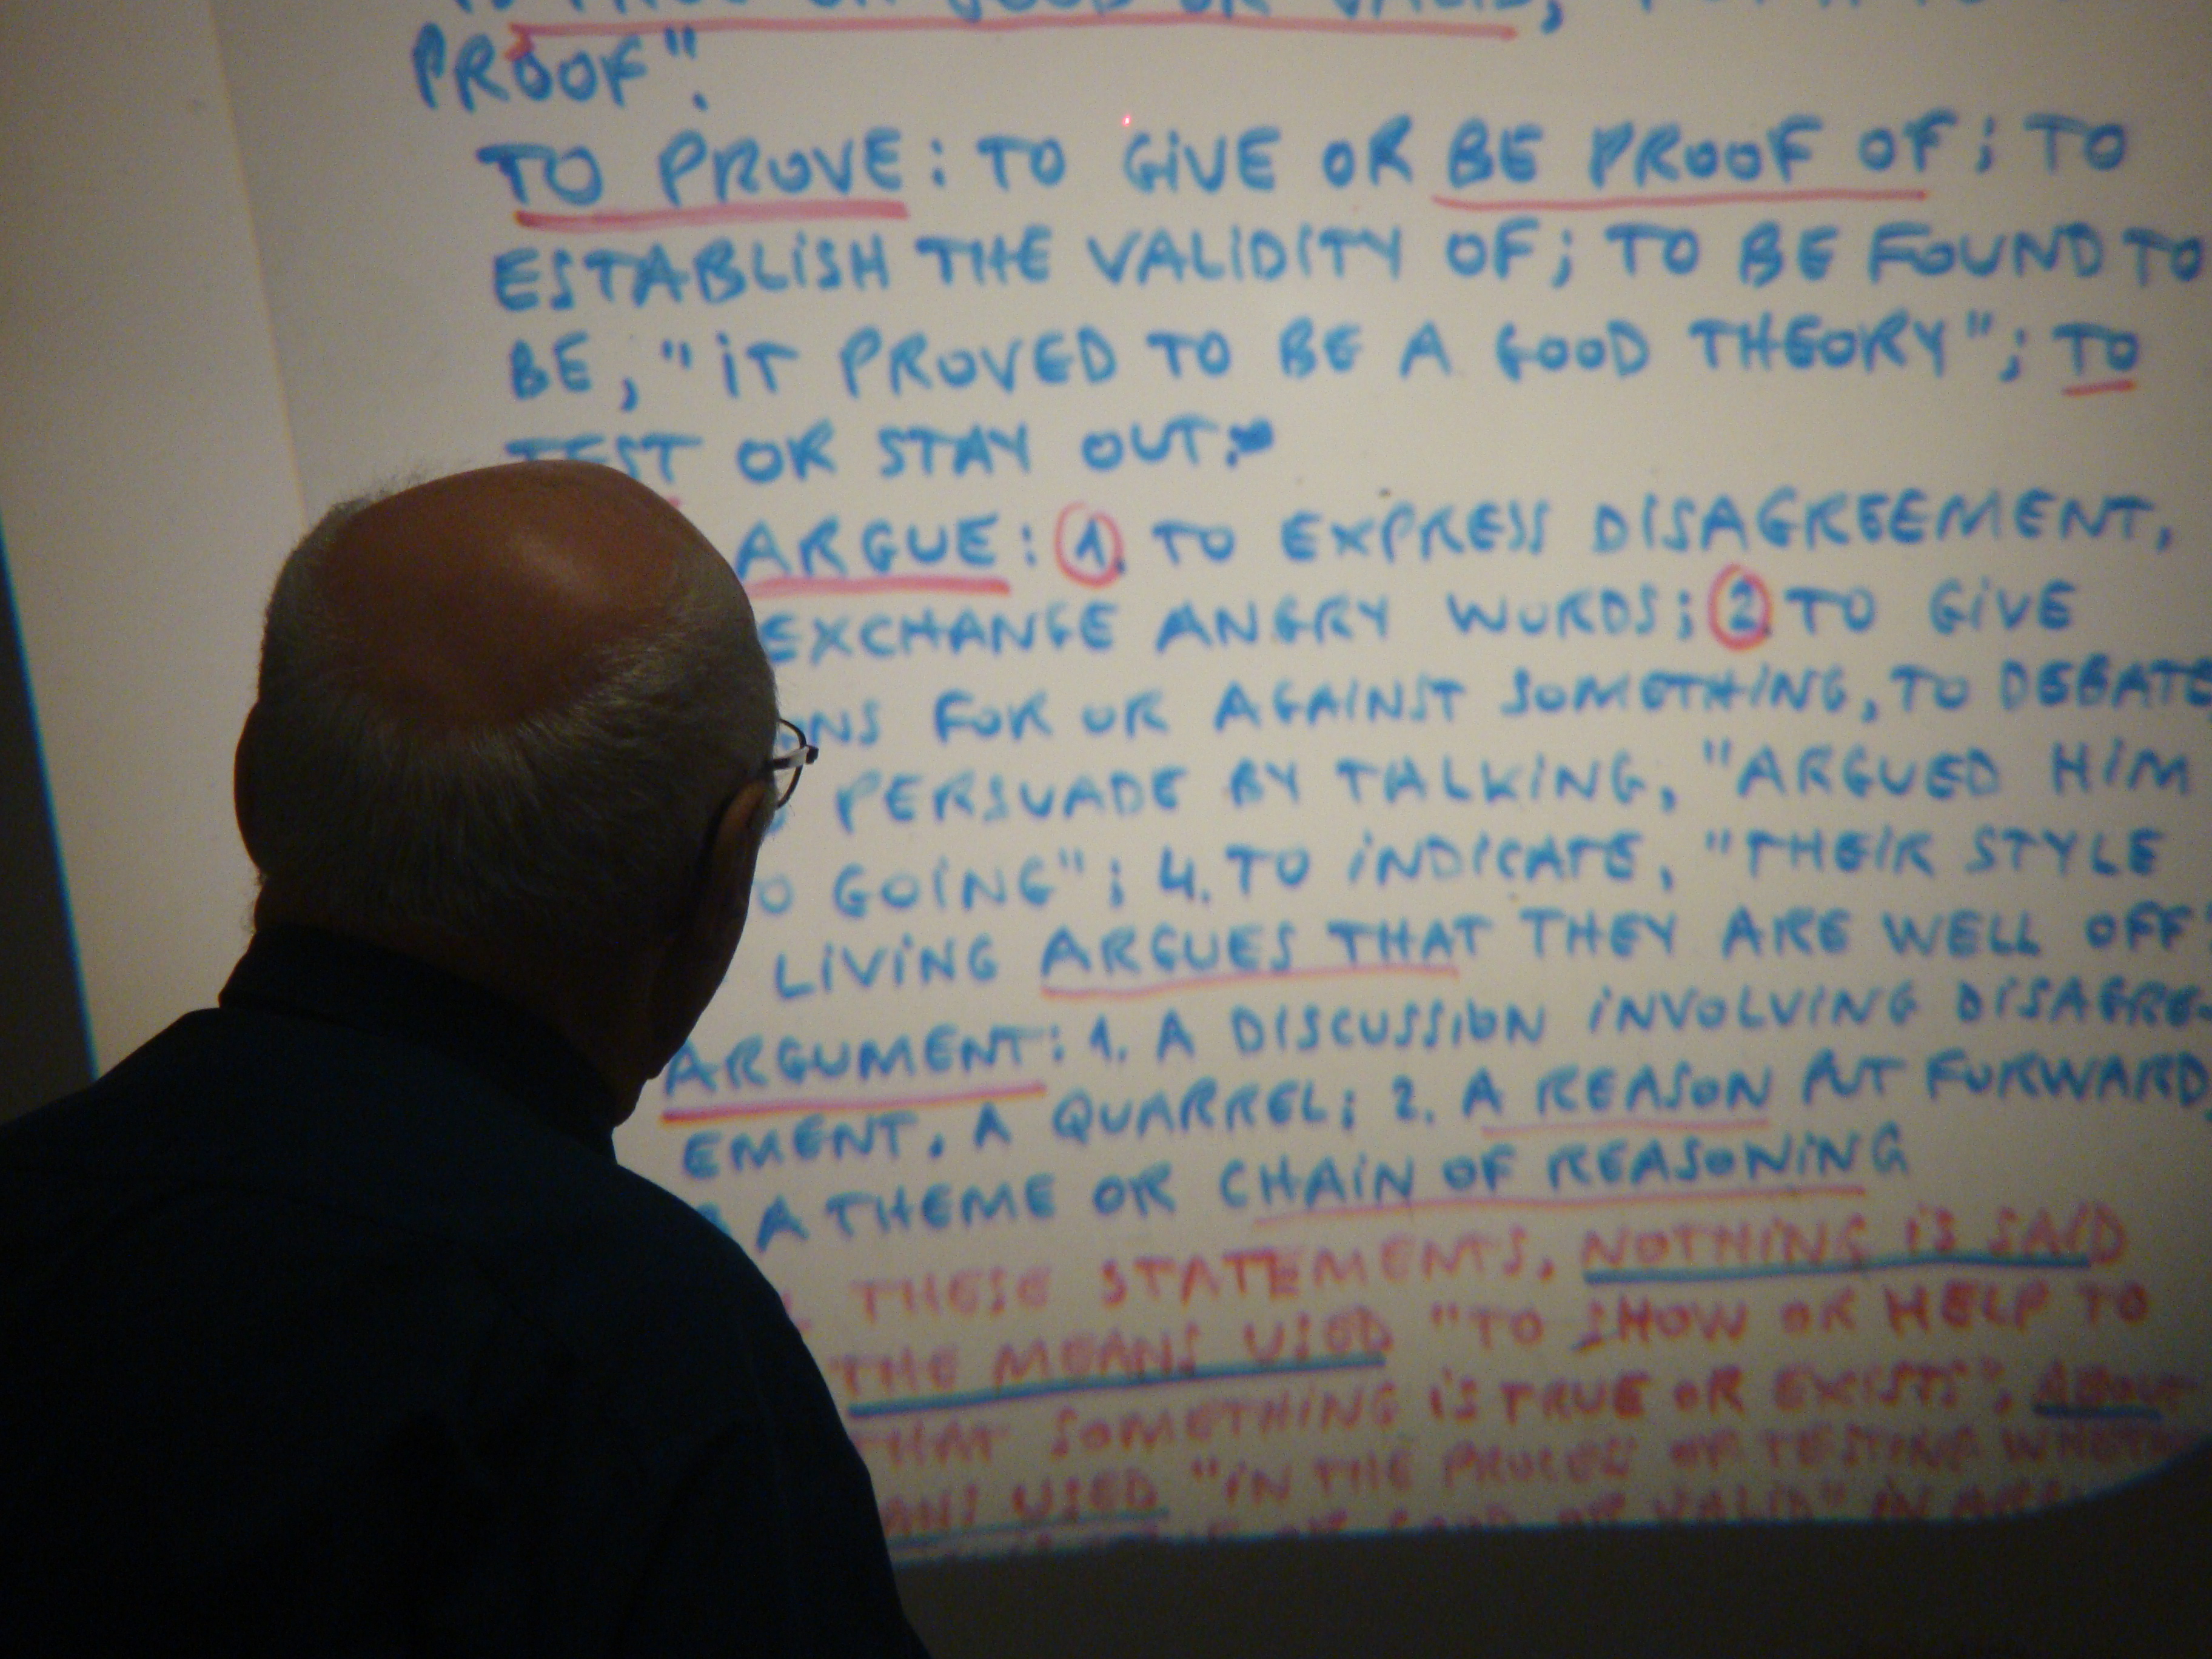 PROOF".
TO PROVE: TO GIVE OR BE PROOF OF; TO
ESTABLISH THE VALIDITY OF; TO BE FOUND TO
BE, "IT PROVED TO BE A GOOD THEORY"; TO
TEST OR STAY OUT.
ARGUE: 1. TO EXPRESS DISAGREEMENT,
EXCHANGE ANGRY WORDS; 2. TO GIVE
ONS FOR OR AGAINST SOMETHING, TO DEBATE
PERSUADE BY TALKING, "ARGUED HIM
O GOING"; 4. TO INDICATE, "THEIR STYLE
LIVING ARGUES THAT THEY ARE WELL OFF"
ARGUMENT: 1. A DISCUSSION INVOLVING DISAGRE-
EMENT, A QUARREL; 2. A REASON PUT FORWARD,
A THEME OR CHAIN OF REASONING
THESE STATEMENTS, NOTHING IS SAID
THE MEANS USED "TO SHOW OR HELP TO
THAT SOMETHING IS TRUE OR EXISTS", ABOUT
ANS USED "IN THE PROCESS OF TESTING WHETH
OR GOOD OR VALID" IN